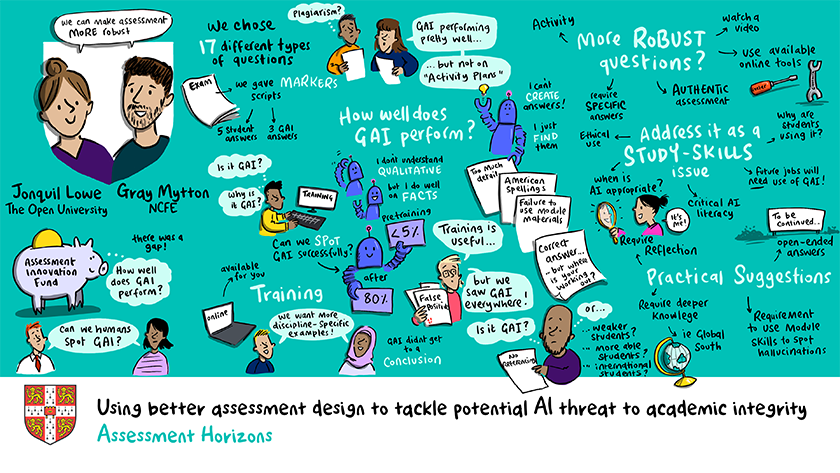 we can make assessment
MORE robust
Jonquil Lowe
The Open University
Gray Mytton
NCFE
Assessment
Innovation
Fund
there was a
gap!
How well
does GAI
perform?
Can we humans
spot GAI?
we chose
17 different types
of questions
Exam
we gave
scripts
MARKERS
5 Student
answers
3 GAI
answers
Plagiarism?
GAI performing
pretty well...
...but not on
"Activity Plans"
How well does
GAI perform?
I can't
CREATE
answers!
I just
FIND
them
I don't understand
QUALITATIVE
but I do well
on FACTS
Is it GAI?
Why is
it GAI?
TRAINING
Can we SPOT
GAI successfully?
pretraining
<5%
after
80%
available
for you
Training
online
we want more
discipline-specific
examples!
GAI didnt get
to a
Conclusion
Too much
detail
American
Spellings
Failure to
use module
materials
Correct
answer...
...but where
is your
working
out?
Training is
useful...
False
Positive
but we
saw GAI
everywhere!
Is it GAI?
No Referencing
or...
... weaker
students?
... more able
students?
... international
students?
Activity
watch a
video
More RoBUST
questions?
use available
online tools
require
SPECIFIC
answers
AUTHENTIC
assessment
Ethical
use
Address it as a
STUDY-SKILLS
issue
Why are
students
using it?
when is
AI appropriate?
critical AI
literacy
future jobs will
need use of GAI!
It's
me!
Require
Reflection
To be
continued...
open-ended
answers
Practical Suggestions
Require deeper
Knowlege
ie Global
South
Requirement
to use Module
Skills to spot
hallucinations
Using better assessment design to tackle potential AI threat to academic integrity
Assessment Horizons